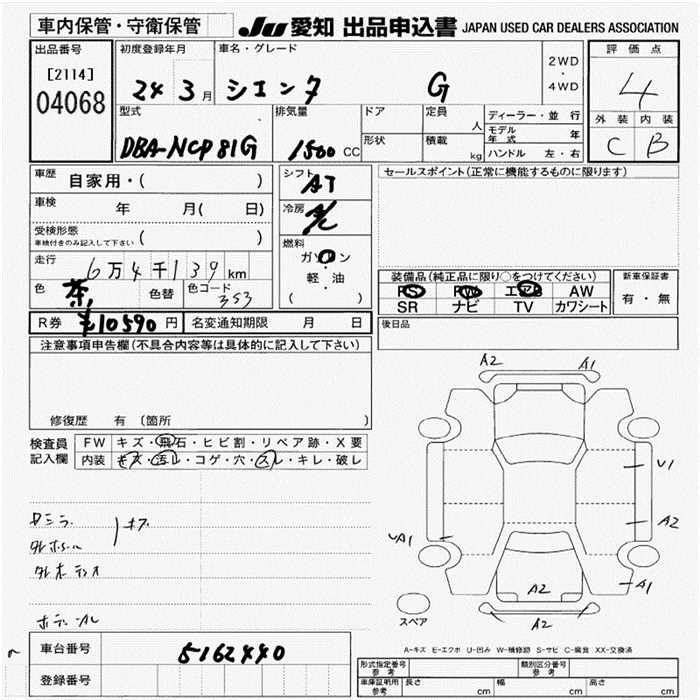 車内保管・守衛保管
JU 愛知 出品申込書 JAPAN USED CAR DEALERS ASSOCIATION
出品番号
[2114]
04068
初度登録年月
24 3月
車名・グレード
シエンタ G
2WD
・
4WD
評価点
4
外装 内装
C B
型式
DBA-NCP81G
排気量
1500 CC
ドア
定員
人
形状
積載
kg
ディーラー・並行
モデル年式 年
ハンドル 左・右
車歴
自家用・( )
車検
年 月( 日)
受検形態
車検付きのみ記入して下さい ( )
走行
6万4千139km
色 茶
色替
色コード 353
シフト AT
冷房 A/C
燃料
ガソリン
・
軽・油
( )
セールスポイント(正常に機能するものに限ります)
装備品(純正品に限り○をつけてください)
PS PW エアB AW
SR ナビ TV カワシート
新車保証書
有・無
R券 ¥10590円
名変通知期限 月 日
後日品
注意事項申告欄(不具合内容等は具体的に記入して下さい)
修復歴 有 (箇所 )
検査員
記入欄
FW キズ・飛石・ヒビ割・リペア跡・X要
内装 キズ・汚レ・コゲ・穴・スレ・キレ・破レ
A2 A1
U1
A2
A1
A2
A2
スペア
A-キズ E-エクボ U-凹み W-補修跡 S-サビ C-腐食 XX-交換済
車台番号 5162440
登録番号
形式指定番号
参考
類別区分番号
参考
車庫証明用
参考
長さ cm 幅 cm 高さ cm